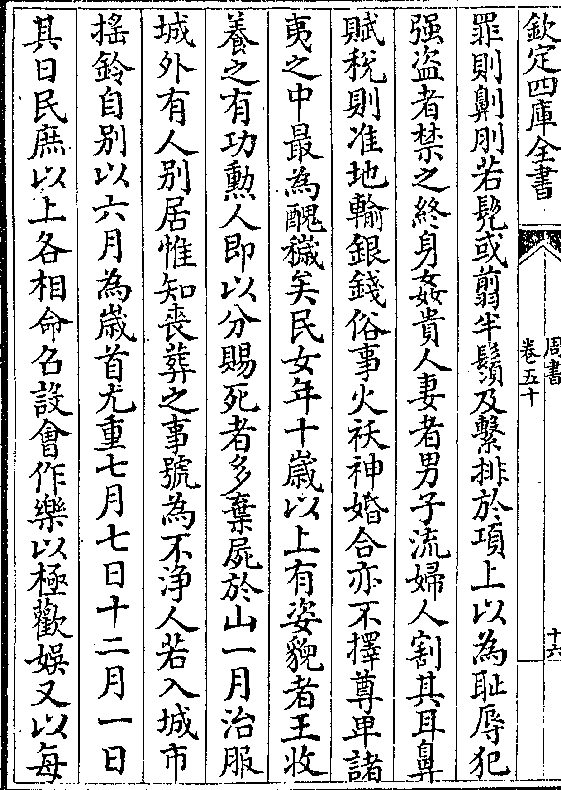 欽定四庫全書
周書
卷五十
十六
罪則劓刖若髡或翦半鬚及繫排於項上以為耻辱犯
强盗者禁之終身姦貴人妻者男子流婦人割其耳鼻
賦稅則准地輸銀錢俗事火祆神婚合亦不擇尊卑諸
夷之中最為醜穢矣民女年十歲以上有姿貌者王收
養之有功勲人即以分賜死者多棄屍於山一月治服
城外有人别居惟知喪葬之事號為不浄人若入城市
搖鈴自别以六月為歲首尤重七月七日十二月一日
其日民庶以上各相命召設會作樂以極歡娛又以每